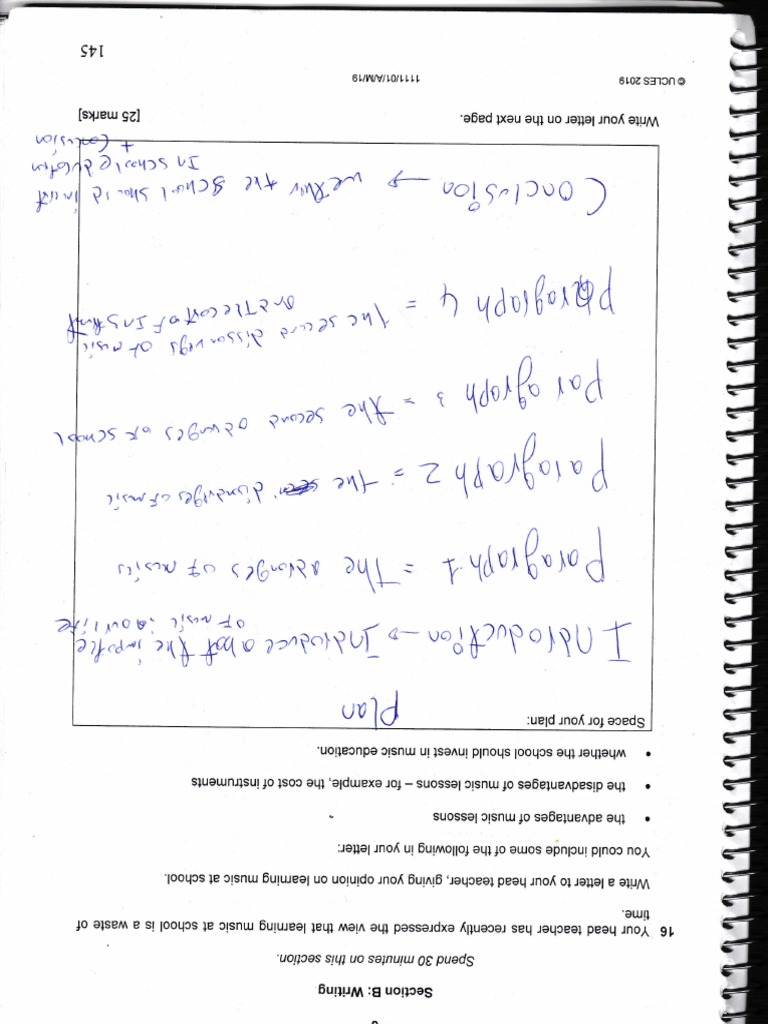 Section B: Writing
Spend 30 minutes on this section.
16 Your head teacher has recently expressed the view that learning music at school is a waste of
time.
Write a letter to your head teacher, giving your opinion on learning music at school.
You could include some of the following in your letter:
• the advantages of music lessons
• the disadvantages of music lessons – for example, the cost of instruments
• whether the school should invest in music education.
Space for your plan:
Plan
Indroduction → Indroduce about the
of music our life
Paragraph 1 = The of music
Paragraph 2 = the of music
Paragraph 3 = the second of school
Paragraph 4 = the second of music
and the cost of
Conclusion → the school should
In school
+ Conclusion
Write your letter on the next page.
[25 marks]
© UCLES 2019
1111/01/A/M/19
145